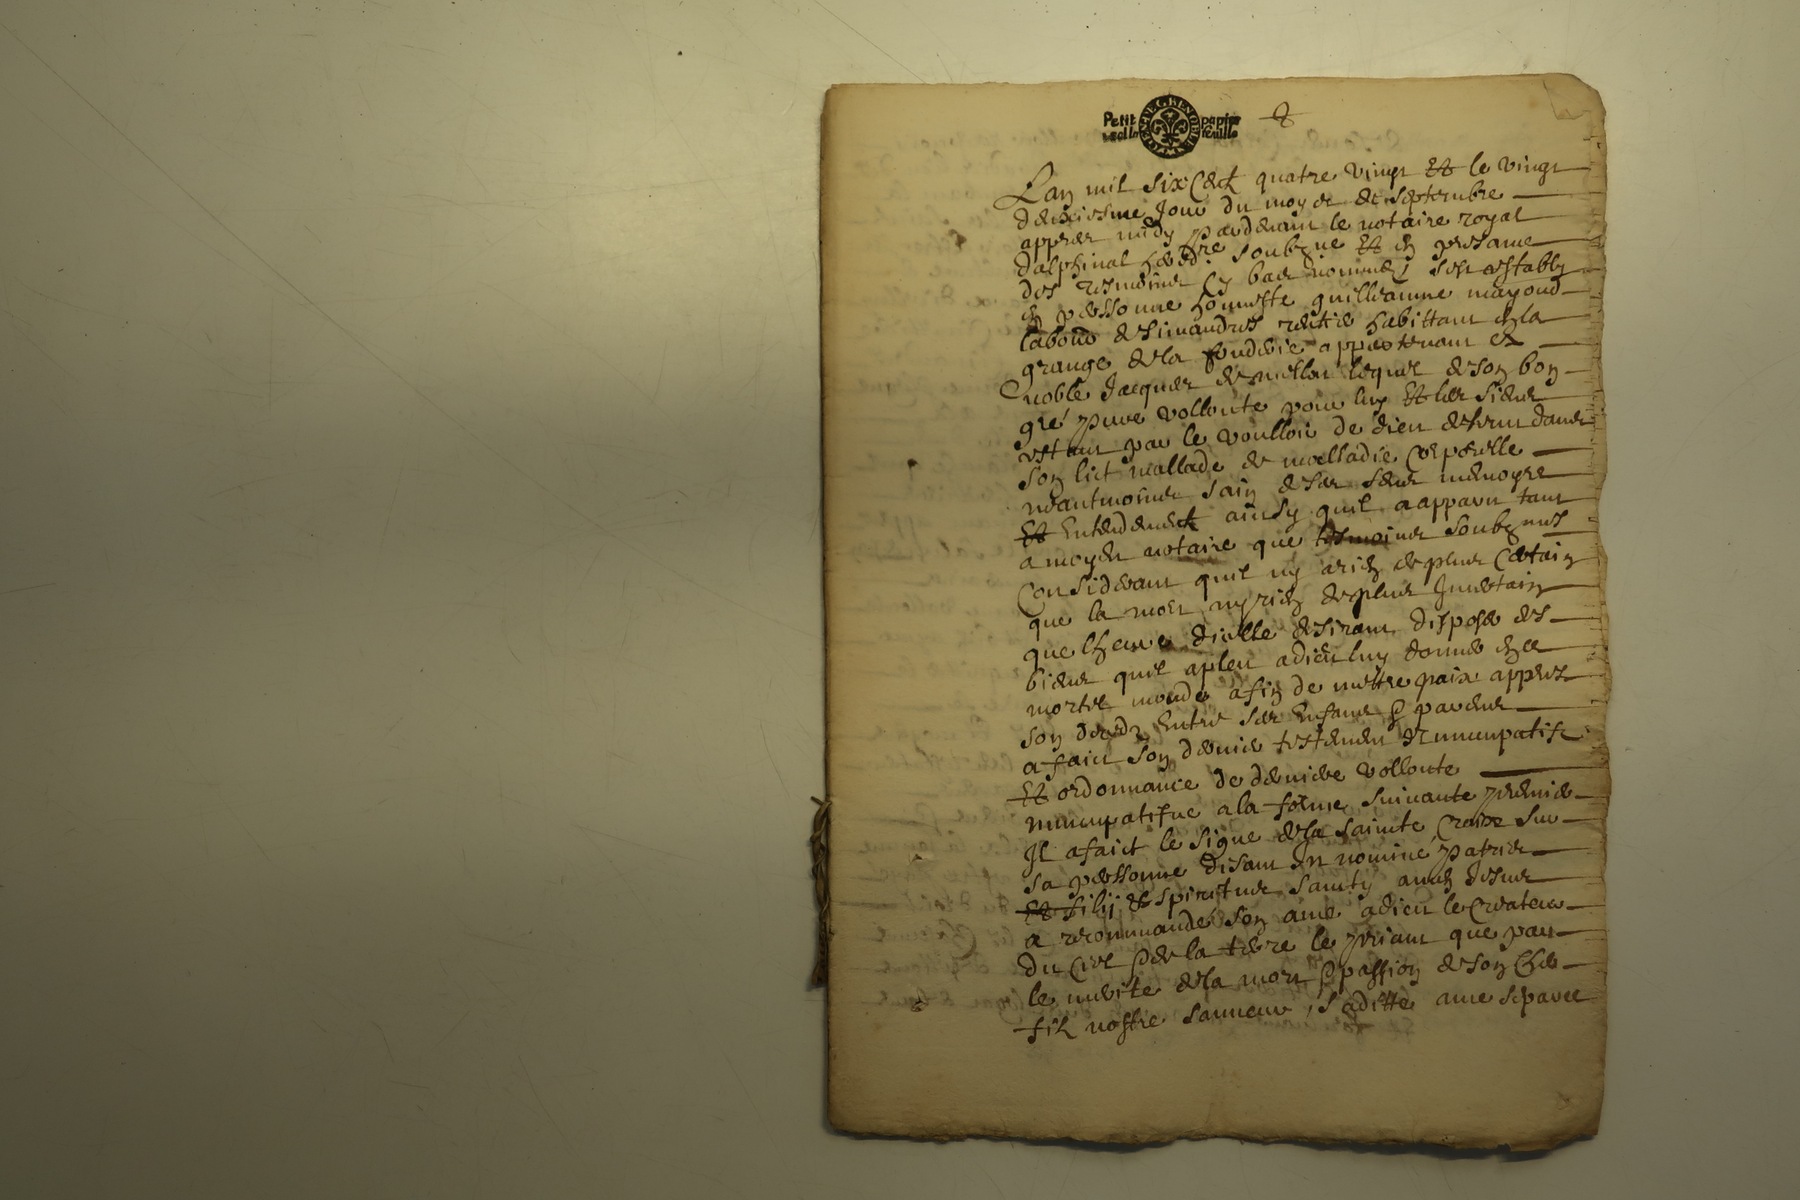 Petit papier
DE GRENOBLE
feuille
Lan mil six Cent quatre vingt Et le vingt
deuxiesme Jour du moys de septembre
appres midy pardevant le notaire royal
dalphinal hered^re soubz^ne Et en presance
des tesmoins Cy bas nommes sest estably
en personne honneste guilleaume mayoud
labour de simandres habittant en la
grange de la fonderie appartenant a
noble Jacques de lequel de son bon
gré pure vollonte pour luy Et les siens
estant par le voulloir de dieu detenu dans
son lict mallade de malladie Corporelle
neantmoins sain de ses sens memoyre
Et Entendement ainsy quil a apparu tant
a moydit notaire que tesmoins soubznes
Considerant quil ny a rien de plus Certain
que la mort ny rien de plus Jncertain
que lheure dicelle desirant disposer des
biens quil a pleu a dieu luy donner en ce
mortel monde afin de mettre paix appres
son deceds Entre ses Enfans & parens
a faict son dernier testement nuncupatif
Et ordonnance de derniere vollonte
nuncupatifue a la forme suivante premier
Jl a faict le signe de la sainte Croix sur
sa personne disant Jn nomine patris
Et filij Et spiritus sancty amen
a recommandé son ame a dieu le Createur
du Ciel & de la terre le priant que par
le merite de la mort & passion de son Cher
filz nostre sauveur, sa ditte ame separee